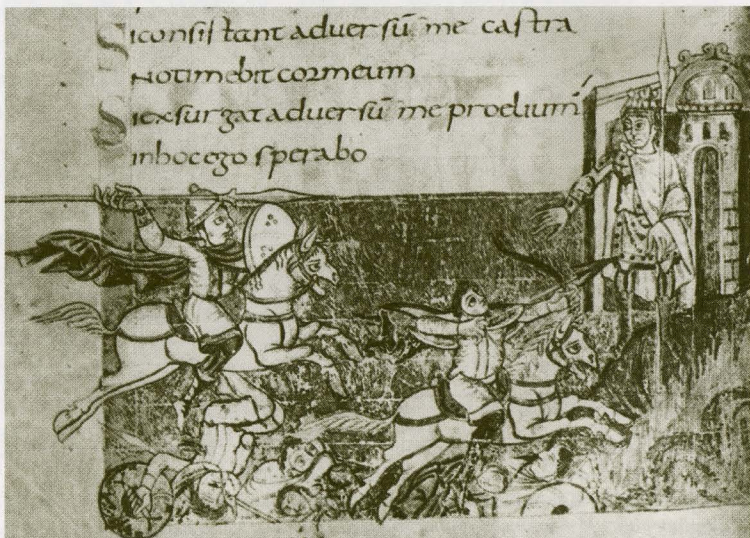 Si consistant adversū me castra
Non timebit cor meum
Si exsurgat adversū me proelium
in hoc ego sperabo